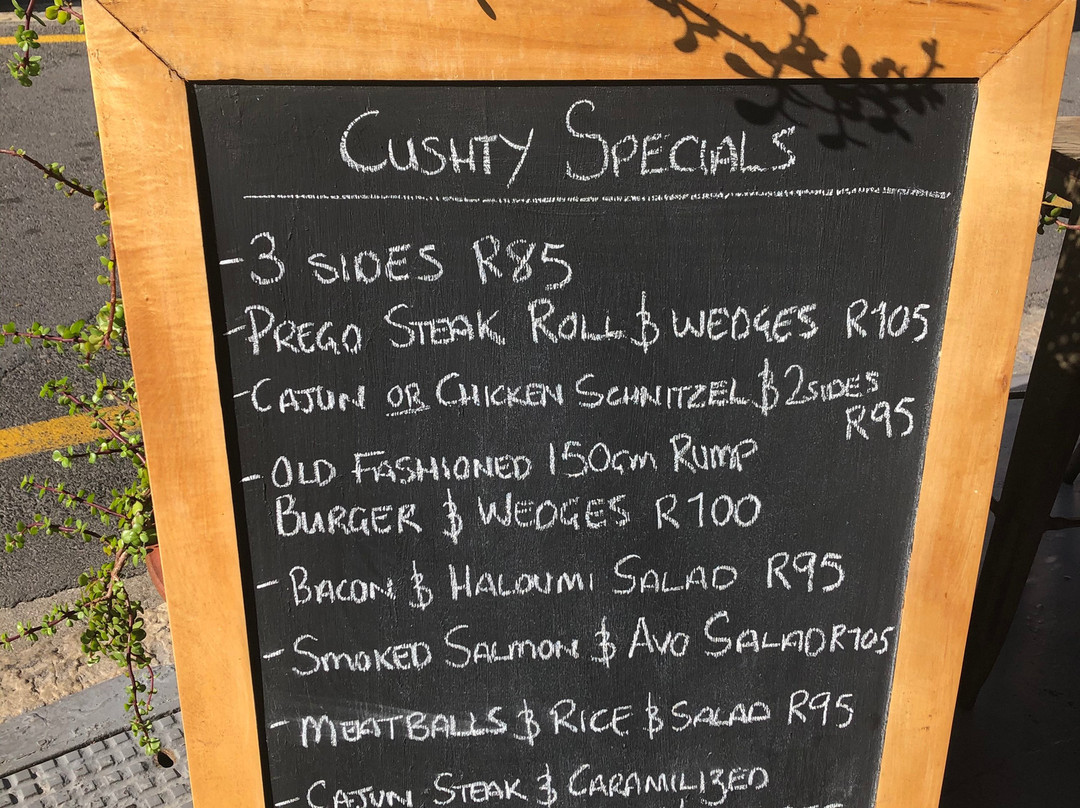 Cushty Specials
- 3 SIDES R85
- PREGO STEAK ROLL & WEDGES R105
- CAJUN OR CHICKEN SCHNITZEL & 2 SIDES
R95
- OLD FASHIONED 150GM RUMP
BURGER & WEDGES R100
- BACON & HALOUMI SALAD R95
- SMOKED SALMON & AVO SALAD R105
- MEATBALLS & RICE & SALAD R95
- CAJUN STEAK & CARAMILIZED